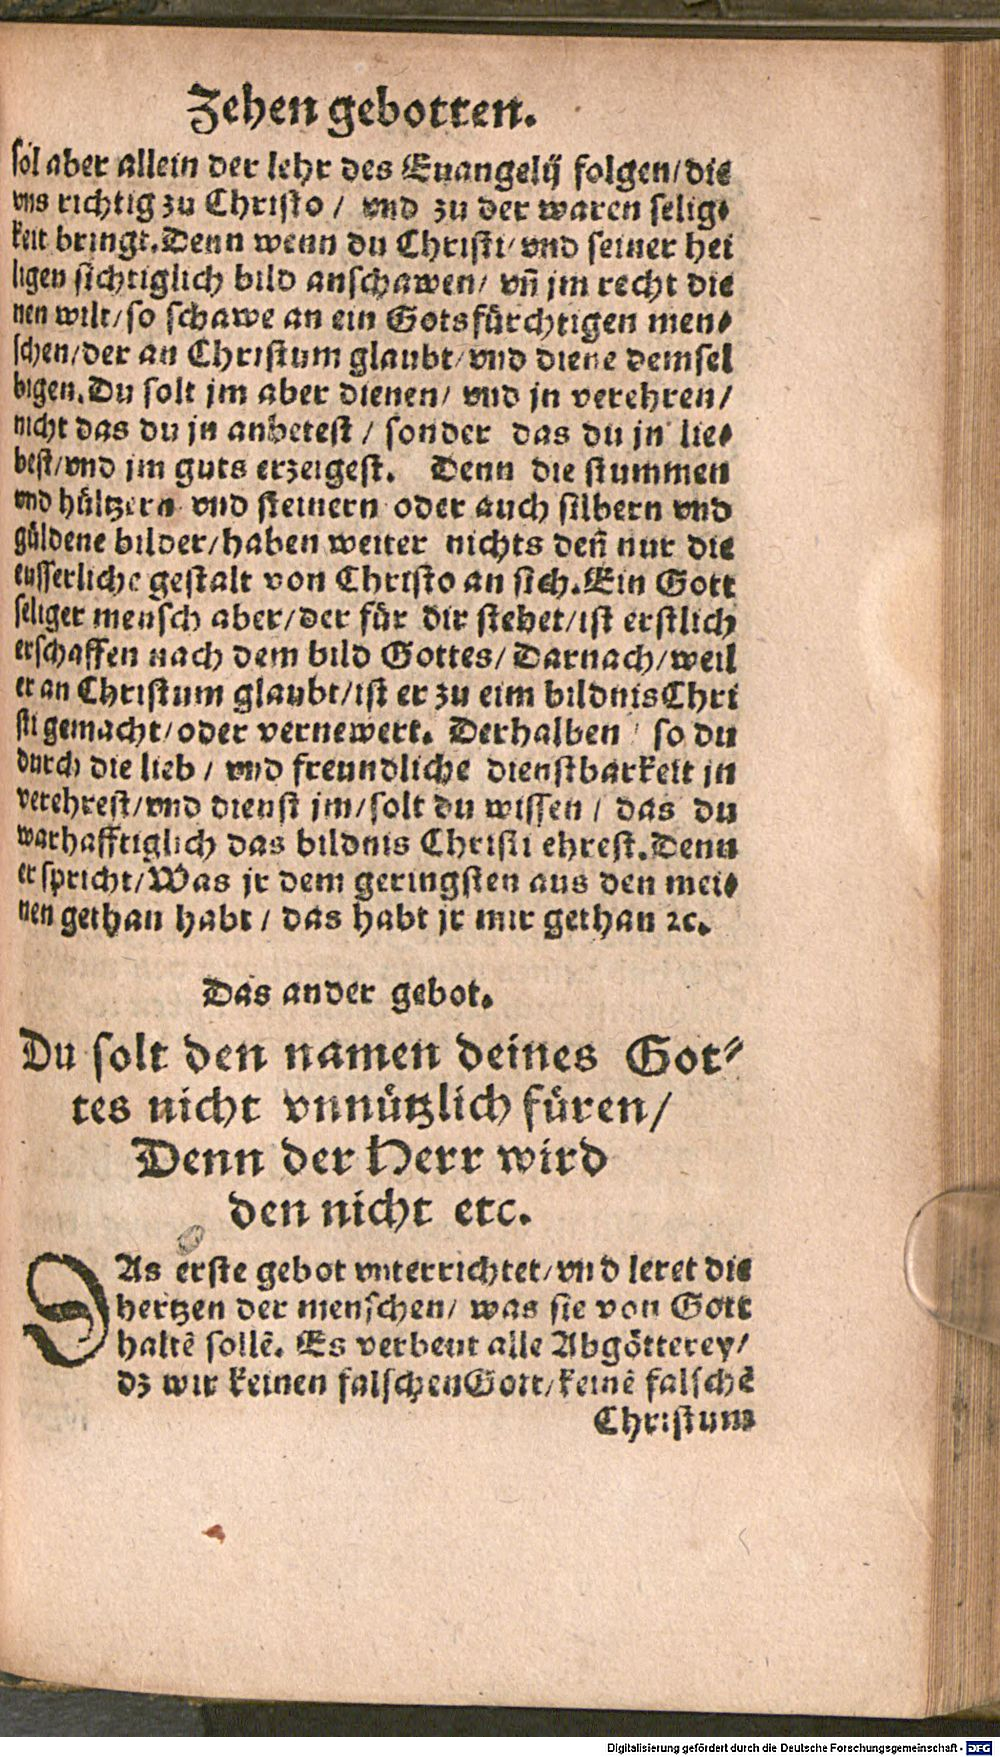 Zehen gebotten.
sol aber allein der lehr des Euangelij folgen/die
vns richtig zu Christo / vnd zu der waren selig-
keit bringt. Denn wenn du Christi/vnd seiner hei
ligen sichtiglich bild anschawen/ vñ jm recht die
nen wilt/so schawe an ein Gotsfürchtigen men-
schen/der an Christum glaubt/vnd diene demsel
bigen. Du solt jm aber dienen/ vnd jn verehren/
nicht das du jn anbetest / sonder das du jn lie-
best/vnd jm guts erzeigest. Denn die stummen
vnd hültzern vnd steinern oder auch silbern vnd
güldene bilder/haben weiter nichts deñ nur die
eusserliche gestalt von Christo an sich. Ein Gott
seliger mensch aber/der für dir stehet/ist erstlich
erschaffen nach dem bild Gottes/ Darnach/weil
er an Christum glaubt/ist er zu eim bildnis Chri
sti gemacht/oder vernewert. Derhalben / so du
durch die lieb / vnd freundliche dienstbarkeit jn
verehrest/vnd dienst jm/solt du wissen / das du
warhafftiglich das bildnis Christi ehrest. Denn
er spricht/Was jr dem geringsten aus den mei-
nen gethan habt / das habt jr mir gethan ꝛc.
Das ander gebot.
Du solt den namen deines Got-
tes nicht vnnützlich füren/
Denn der Herr wird
den nicht etc.
DAs erste gebot vnterrichtet/vnd leret die
hertzen der menschen/ was sie von Gott
haltē sollē. Es verbeut alle Abgötterey/
dz wir keinen falschen Gott/keinē falschē
Christum
Digitalisierung gefördert durch die Deutsche Forschungsgemeinschaft - DFG